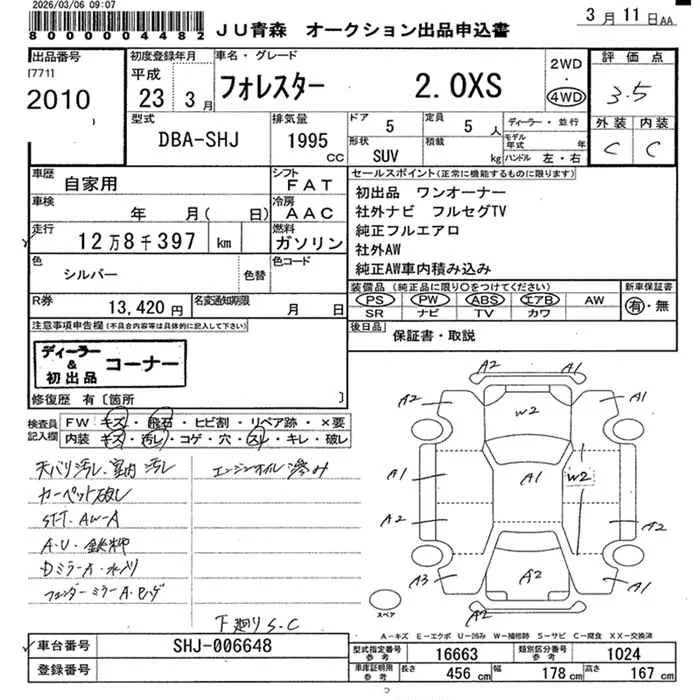 2026/03/06 09:07
800000004482
JU青森 オークション出品申込書
3月11日AA
出品番号
[771]
2010
初度登録年月
平成
23 3月
車名・グレード
フォレスター 2.0XS
2WD
・
4WD
評価点
3.5
外装 内装
C C
型式
DBA-SHJ
排気量
1995 CC
ドア 5
定員 5 人
形状 SUV
積載 kg
ディーラー・並行
モデル年式 年
ハンドル 左・右
車歴
自家用
シフト
FAT
車検
年 月( 日)
冷房
AAC
走行
12万8千397 km
燃料
ガソリン
色
シルバー
色替
色コード
R券
13,420円
名変通知期限
月 日
セールスポイント(正常に機能するものに限ります)
初出品 ワンオーナー
社外ナビ フルセグTV
純正フルエアロ
社外AW
純正AW車内積み込み
装備品 (純正品に限り○をつけてください)
PS PW ABS エアB AW
SR ナビ TV カワ
新車保証書
有・無
後日品
保証書・取説
注意事項申告欄(不具合内容等は具体的に記入して下さい)
ディーラー
&
初出品
コーナー
修復歴 有 [箇所 ]
検査員
記入欄
FW キズ・飛石・ヒビ割・リペア跡・×要
内装 キズ・汚レ・コゲ・穴・スレ・キレ・破レ
天バリ汚レ、室内汚レ
カーペット破レ
ST-T. AW-A
A.U・鉄粉
Dミラー A・水入り
フェンダーミラー A.ヒゲ
エンジンオイル滲み
下廻り S.C
A2
A2
A2
W2
A1
A1
A1
W2
A2
A2
A3
A2
A1
A2
スペア
A-キズ E-エクボ U-凹み W-補修跡 S-サビ C-腐食 XX-交換済
車台番号
SHJ-006648
登録番号
型式指定番号
参考
16663
類別区分番号
参考
1024
車庫証明用
参考
長さ 456 cm
幅 178 cm
高さ 167 cm